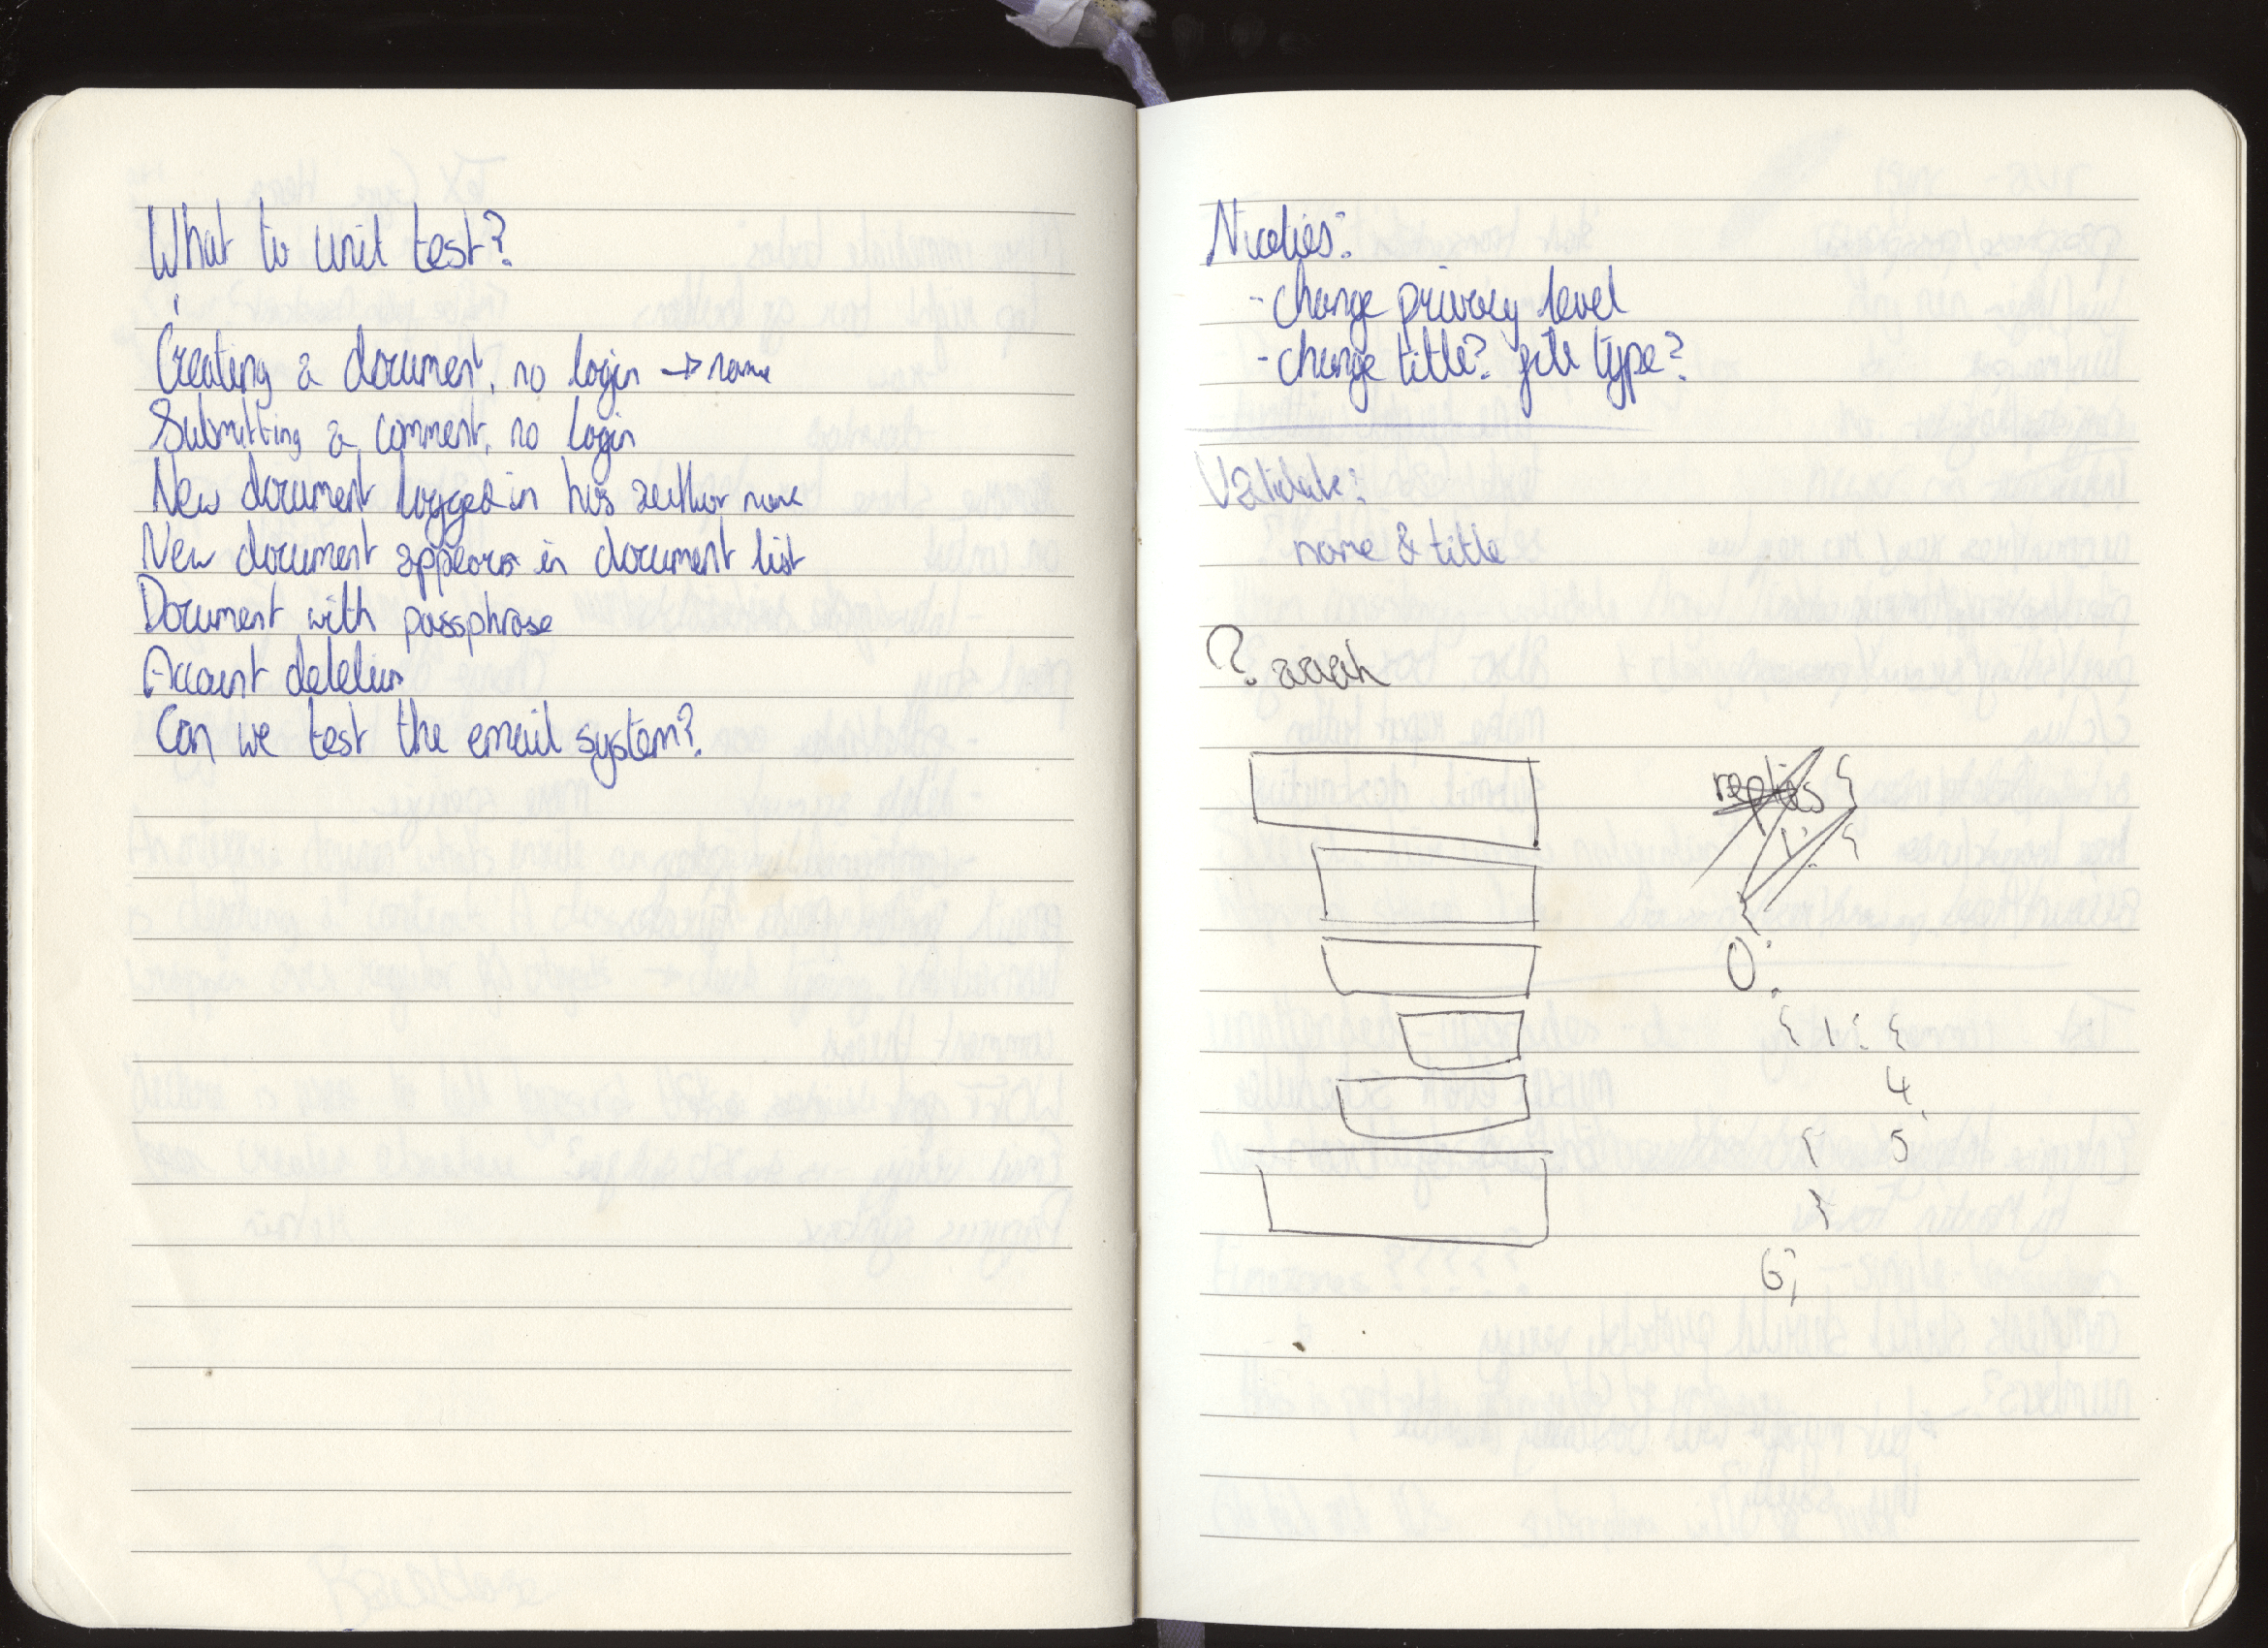 What to unit test?
Creating a document, no login → name
Submitting a comment, no login
New document logged in has author name
New document appears in document list
Document with passphrase
Account deletion
Can we test the email system?
Niceties:
- change privacy level
- change title? file type?
Validate:
name & title
? aaah
replies {
1: {
{
0:
{ 1: {
4,
{ 5
}
6;